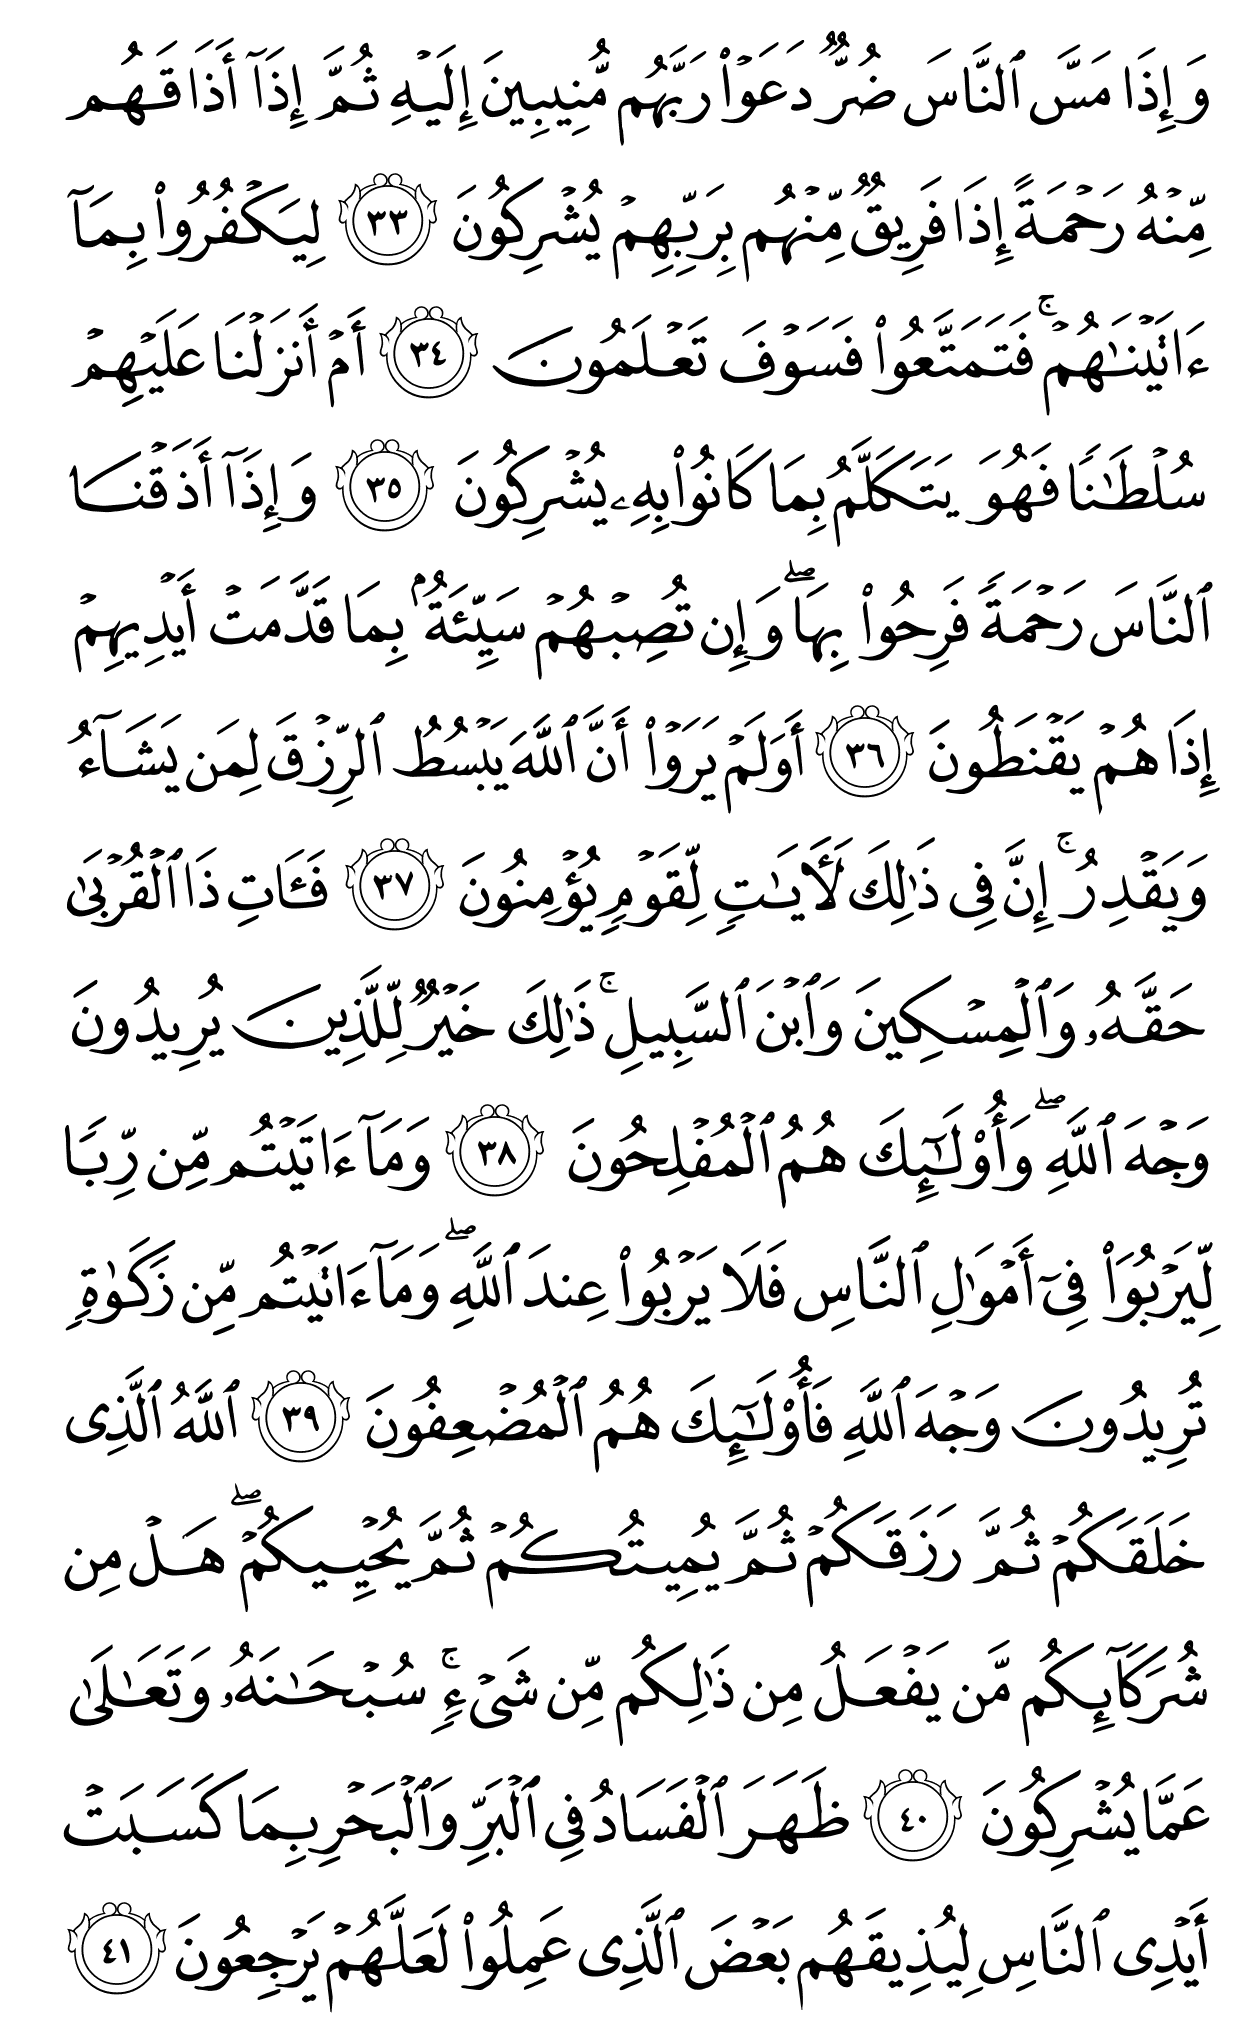 وَإِذَا مَسَّ ٱلنَّاسَ ضُرٌّ دَعَوۡاْ رَبَّهُم مُّنِيبِينَ إِلَيۡهِ ثُمَّ إِذَآ أَذَاقَهُم
مِّنۡهُ رَحۡمَةً إِذَا فَرِيقٌ مِّنۡهُم بِرَبِّهِمۡ يُشۡرِكُونَ ٣٣ لِيَكۡفُرُواْ بِمَآ
ءَاتَيۡنَٰهُمۡۚ فَتَمَتَّعُواْ فَسَوۡفَ تَعۡلَمُونَ ٣٤ أَمۡ أَنزَلۡنَا عَلَيۡهِمۡ
سُلۡطَٰنًا فَهُوَ يَتَكَلَّمُ بِمَا كَانُواْ بِهِۦ يُشۡرِكُونَ ٣٥ وَإِذَآ أَذَقۡنَا
ٱلنَّاسَ رَحۡمَةً فَرِحُواْ بِهَاۖ وَإِن تُصِبۡهُمۡ سَيِّئَةُۢ بِمَا قَدَّمَتۡ أَيۡدِيهِمۡ
إِذَا هُمۡ يَقۡنَطُونَ ٣٦ أَوَلَمۡ يَرَوۡاْ أَنَّ ٱللَّهَ يَبۡسُطُ ٱلرِّزۡقَ لِمَن يَشَآءُ
وَيَقۡدِرُۚ إِنَّ فِي ذَٰلِكَ لَأٓيَٰتٍ لِّقَوۡمٍ يُؤۡمِنُونَ ٣٧ فَـَٔاتِ ذَا ٱلۡقُرۡبَىٰ
حَقَّهُۥ وَٱلۡمِسۡكِينَ وَٱبۡنَ ٱلسَّبِيلِۚ ذَٰلِكَ خَيۡرٌ لِّلَّذِينَ يُرِيدُونَ
وَجۡهَ ٱللَّهِۖ وَأُوْلَٰٓئِكَ هُمُ ٱلۡمُفۡلِحُونَ ٣٨ وَمَآ ءَاتَيۡتُم مِّن رِّبًا
لِّيَرۡبُوَاْ فِيٓ أَمۡوَٰلِ ٱلنَّاسِ فَلَا يَرۡبُواْ عِندَ ٱللَّهِۖ وَمَآ ءَاتَيۡتُم مِّن زَكَوٰةٍ
تُرِيدُونَ وَجۡهَ ٱللَّهِ فَأُوْلَٰٓئِكَ هُمُ ٱلۡمُضۡعِفُونَ ٣٩ ٱللَّهُ ٱلَّذِي
خَلَقَكُمۡ ثُمَّ رَزَقَكُمۡ ثُمَّ يُمِيتُكُمۡ ثُمَّ يُحۡيِيكُمۡۖ هَلۡ مِن
شُرَكَآئِكُم مَّن يَفۡعَلُ مِن ذَٰلِكُم مِّن شَيۡءٍۚ سُبۡحَٰنَهُۥ وَتَعَٰلَىٰ
عَمَّا يُشۡرِكُونَ ٤٠ ظَهَرَ ٱلۡفَسَادُ فِي ٱلۡبَرِّ وَٱلۡبَحۡرِ بِمَا كَسَبَتۡ
أَيۡدِي ٱلنَّاسِ لِيُذِيقَهُم بَعۡضَ ٱلَّذِي عَمِلُواْ لَعَلَّهُمۡ يَرۡجِعُونَ ٤١